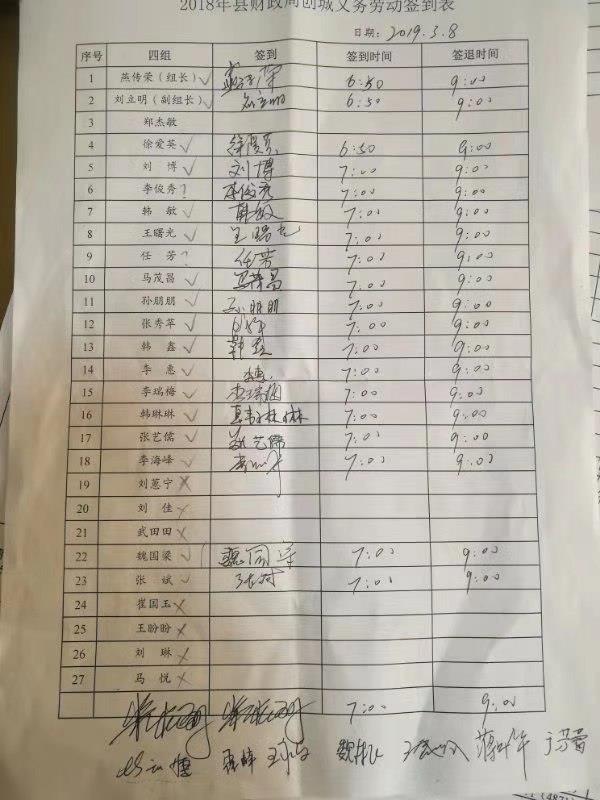 2018年县财政局创城义务劳动签到表
日期: 2019.3.8
序号 四组 签到 签到时间 签退时间
1 燕传荣(组长)√ 6:50 9:00
2 刘立明(副组长)√ 刘立明 6:50 9:00
3 郑杰敏
4 徐爱英√ 徐爱英 6:50 9:00
5 刘博√ 刘博 7:00 9:00
6 李俊秀? 李俊秀 7:00 9:00
7 韩敏√ 韩敏 7:00 9:00
8 王曙光√ 王曙光 7:00 9:00
9 任芳? 任芳 7:00 9:00
10 马茂昌√ 马茂昌 7:00 9:00
11 孙朋朋√ 孙朋朋 7:00 9:00
12 张秀苹√ 7:00 9:00
13 韩鑫√ 韩鑫 7:00 9:00
14 李惠√ 李惠 7:00 9:00
15 李瑞梅√ 李瑞梅 7:00 9:00
16 韩琳琳√ 韩琳琳 7:00 9:00
17 张艺儒√ 张艺儒 7:00 9:00
18 李海峰√ 7:00 9:00
19 刘蕙宁×
20 刘佳×
21 武田田×
22 魏国梁√ 魏国梁 7:00 9:00
23 张斌√ 张斌 7:00 9:00
24 崔国玉×
25 王盼盼×
26 刘琳×
27 马悦×
7:00 9:00